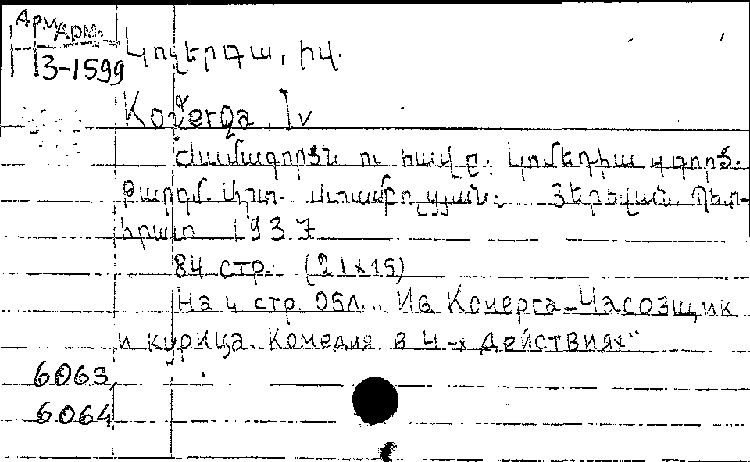 Арм. Арм.
3-1599
Կոչերգա, Իվ.
Kočerga, Iv
Ժամագործն ու հավը. կոմեդիա 4 գործ.
Թարգմ. Արտ.
Յերևան, Պետ-
հրատ 1937
84 стр. (21x15)
На 4 стр. обл.: Ив Кочерга-Часовщик
и курица. Комедия в 4-х действиях"
6063,
6064